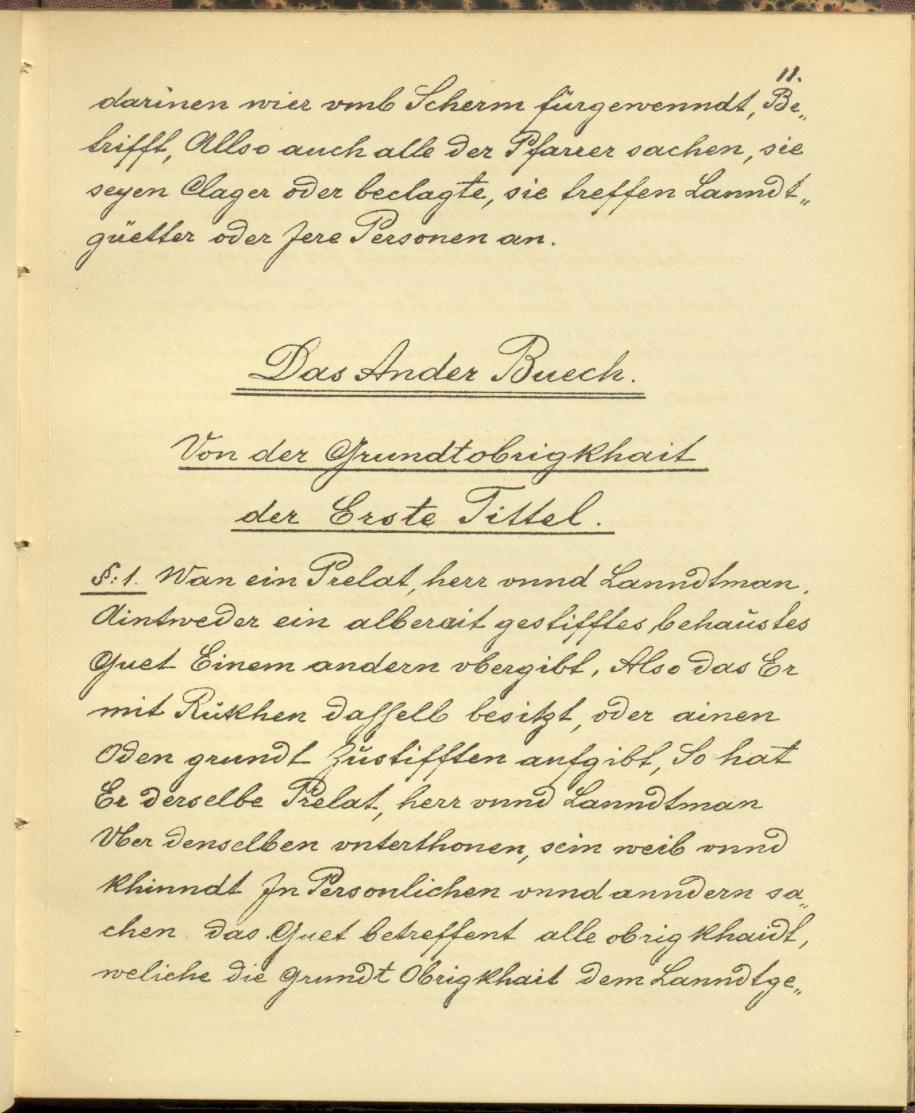 11.
darinen wier vmb Scherm fürgewenndt, Be„
trifft, Allso auch alle der Pfarrer sachen, sie
seyen Clager oder beclagte, sie treffen Lanndt„
güetter oder Jere Personen an.
Das Ander Buech.
Von der Grundtobrigkhait
der Erste Tittel.
§: 1. Wan ein Prelat, herr vnnd Lanndtman,
Aintweder ein alberait gestifftes, behaustes
Guet Einem andern vbergibt, Also das Er
mit Rükhen dasselb besitzt, oder ainen
Öden grundt Zustifften aufgibt, So hat
Er derselbe Prelat, herr vnnd Lanndtman
Vber denselben vnterthonen, sein weib vnnd
khinndt Jn Personlichen vnnd anndern sa„
chen das Guet betreffent alle obrigkhaidt,
weliche die grundt Obrigkhait dem Lanndtge„